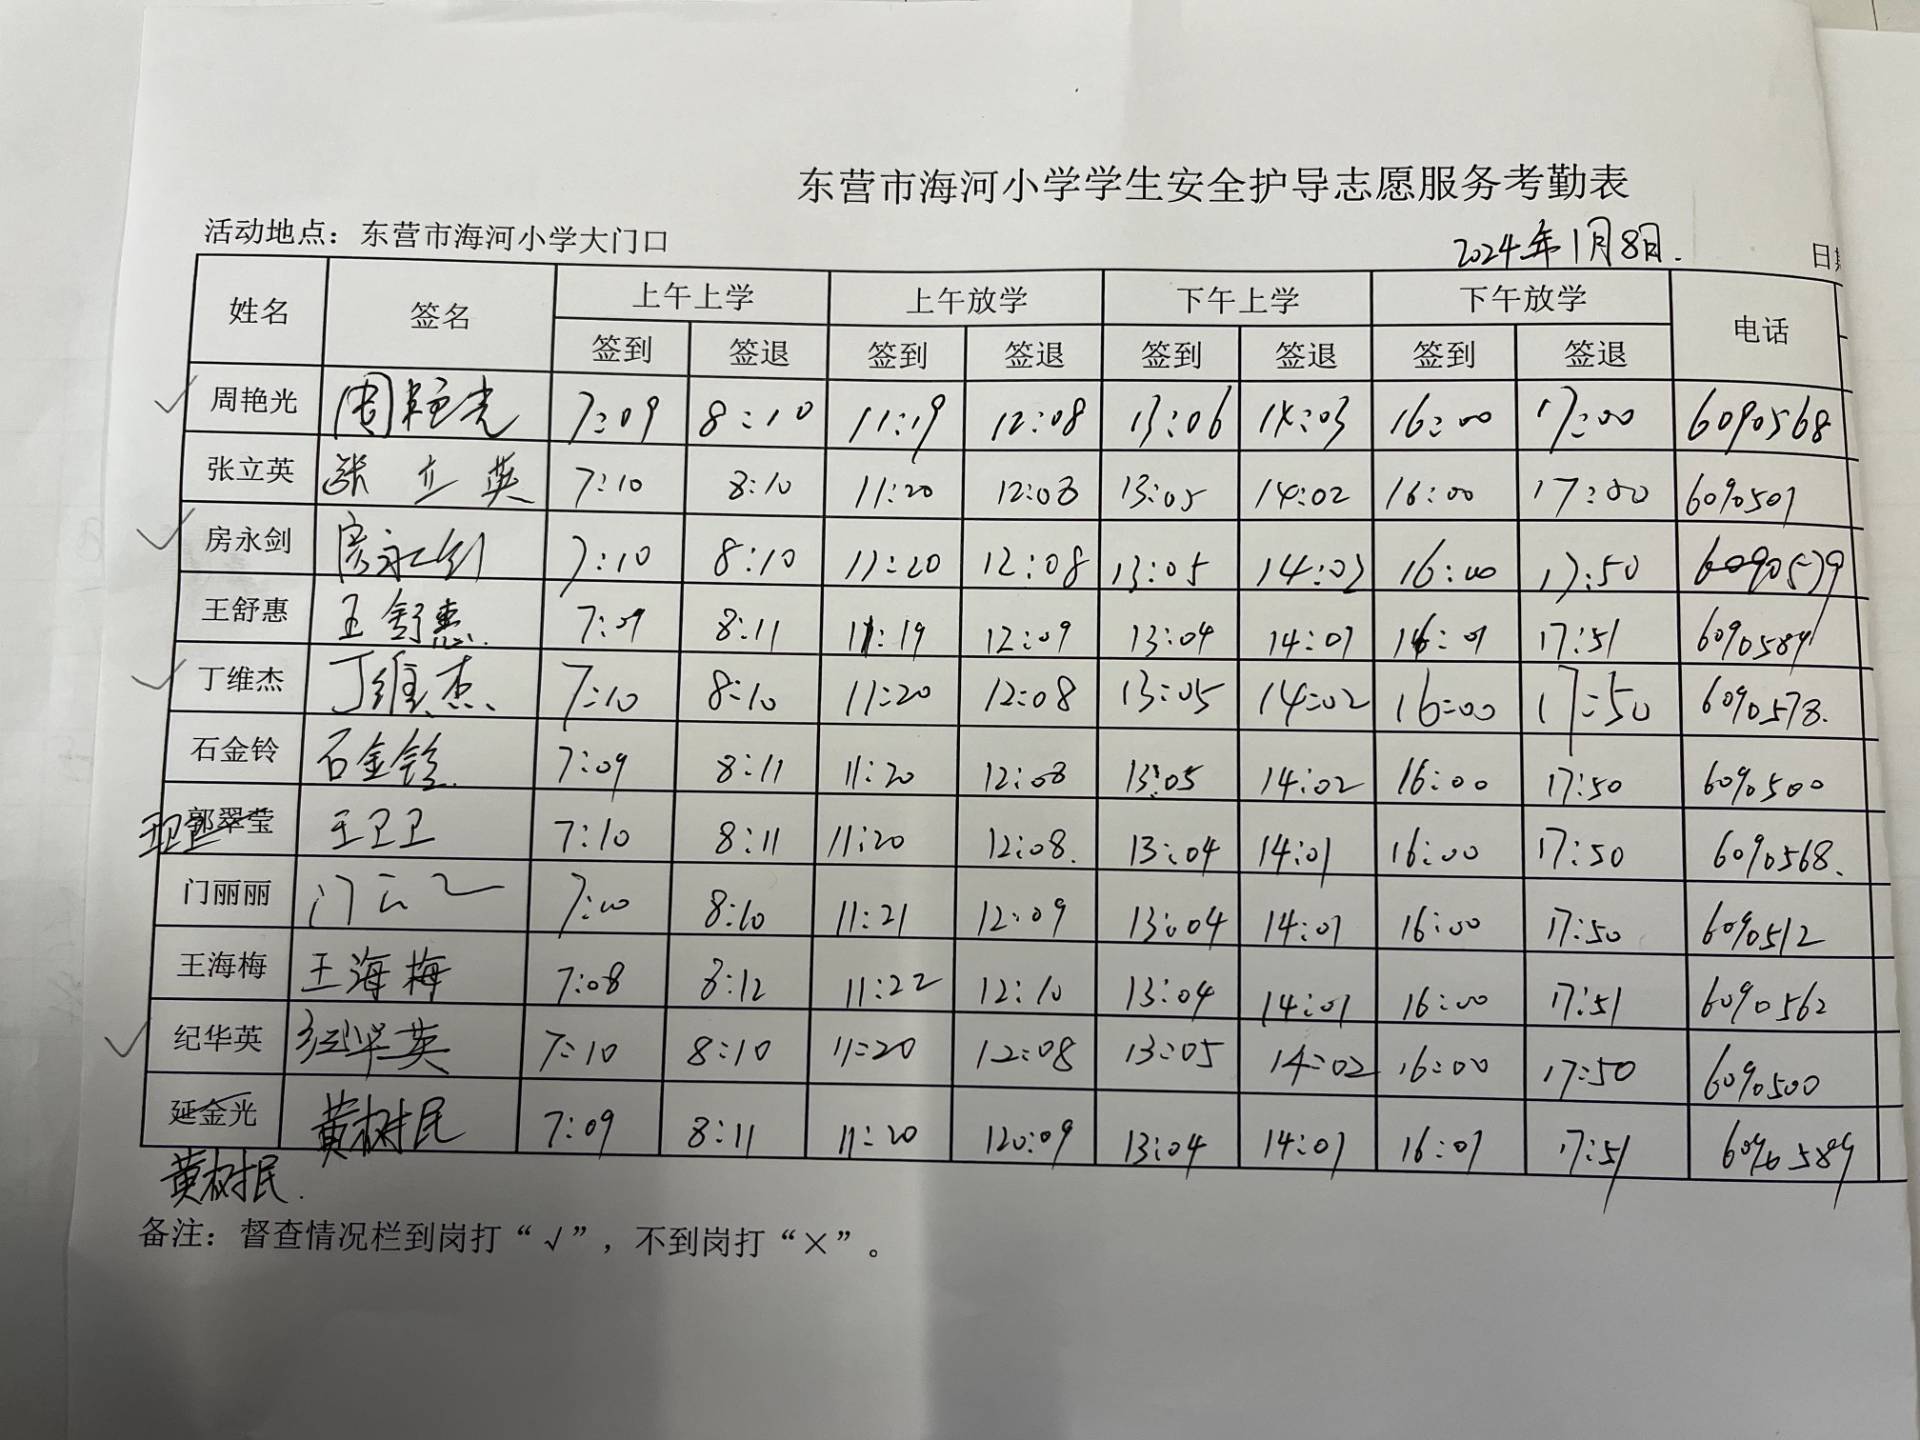 东营市海河小学学生安全护导志愿服务考勤表
活动地点：东营市海河小学大门口 2024年1月8日. 日
姓名 签名 上午上学 上午放学 下午上学 下午放学 电话
签到 签退 签到 签退 签到 签退 签到 签退
✓ 周艳光 周艳光 7:09 8:10 11:19 12:08 13:06 14:03 16:00 17:00 6090568
张立英 张立英 7:10 8:10 11:20 12:08 13:05 14:02 16:00 17:00 6090501
✓ 房永剑 房永剑 7:10 8:10 11:20 12:08 13:05 14:02 16:00 17:50 6090579
王舒惠 王舒惠. 7:09 8:11 11:19 12:09 13:04 14:01 16:01 17:51 6090589
✓ 丁维杰 丁维杰. 7:10 8:10 11:20 12:08 13:05 14:02 16:00 17:50 6090578.
石金铃 石金铃. 7:09 8:11 11:20 12:08 13:05 14:02 16:00 17:50 6090500
王卫卫 郭翠莹 王卫卫 7:10 8:11 11:20 12:08. 13:04 14:01 16:00 17:50 6090568.
门丽丽 门 7:10 8:10 11:21 12:09 13:04 14:01 16:00 17:50 6090512
王海梅 王海梅 7:08 8:12 11:22 12:10 13:04 14:01 16:00 17:51 6090562
✓ 纪华英 纪华英 7:10 8:10 11:20 12:08 13:05 14:02 16:00 17:50 6090500
延金光 黄树民 7:09 8:11 11:20 120:09 13:04 14:01 16:01 17:51 6090589
黄树民.
备注：督查情况栏到岗打“√”，不到岗打“×”。